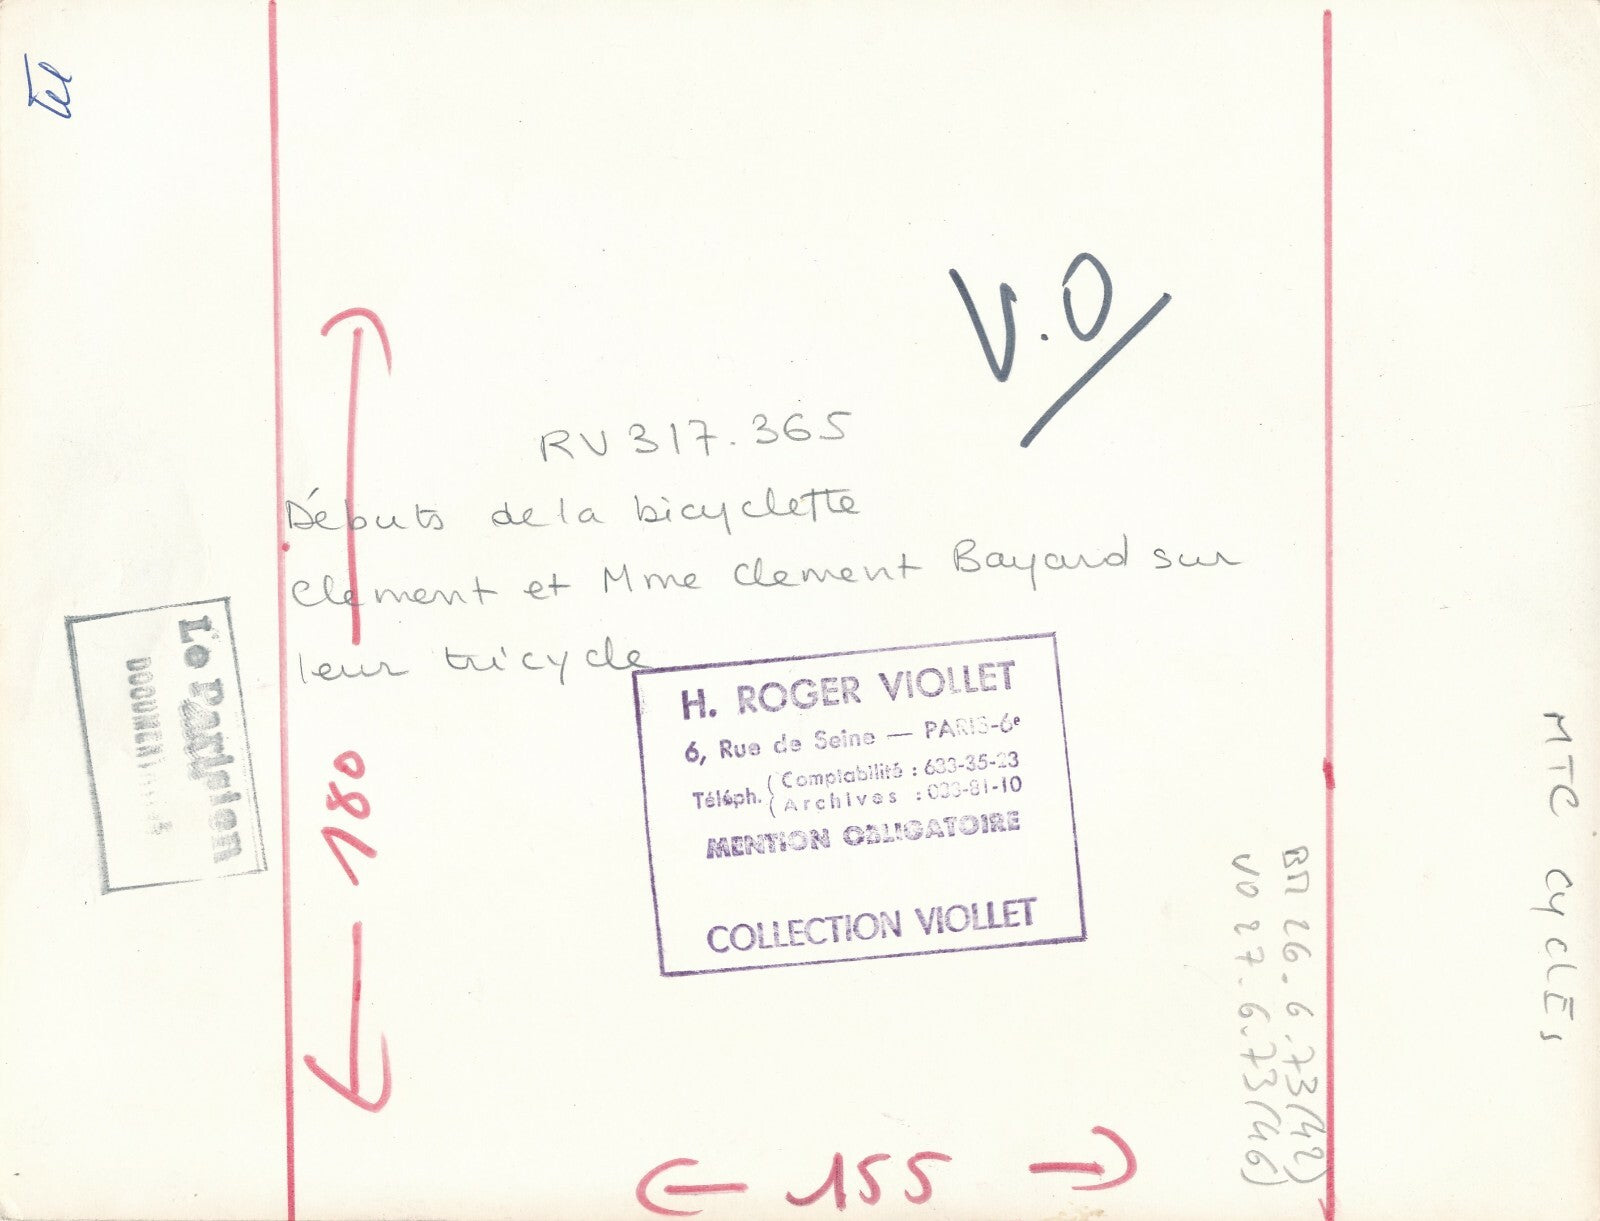 Tel
V.O
RV 317.365
Débuts de la bicyclette
Clement et Mme Clement Bayard sur
leur tricycle
H. ROGER VIOLLET
6, Rue de Seine — PARIS-6e
Téléph. ( Comptabilité : 633-35-23
( Archives : 033-81-10
MENTION OBLIGATOIRE
COLLECTION VIOLLET
Le Parisien
180
155
MTC CYCLES
26.6.73 (42)
VO 27.6.73 (46)